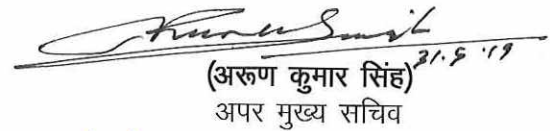 31.5.19
(अरूण कुमार सिंह)
अपर मुख्य सचिव